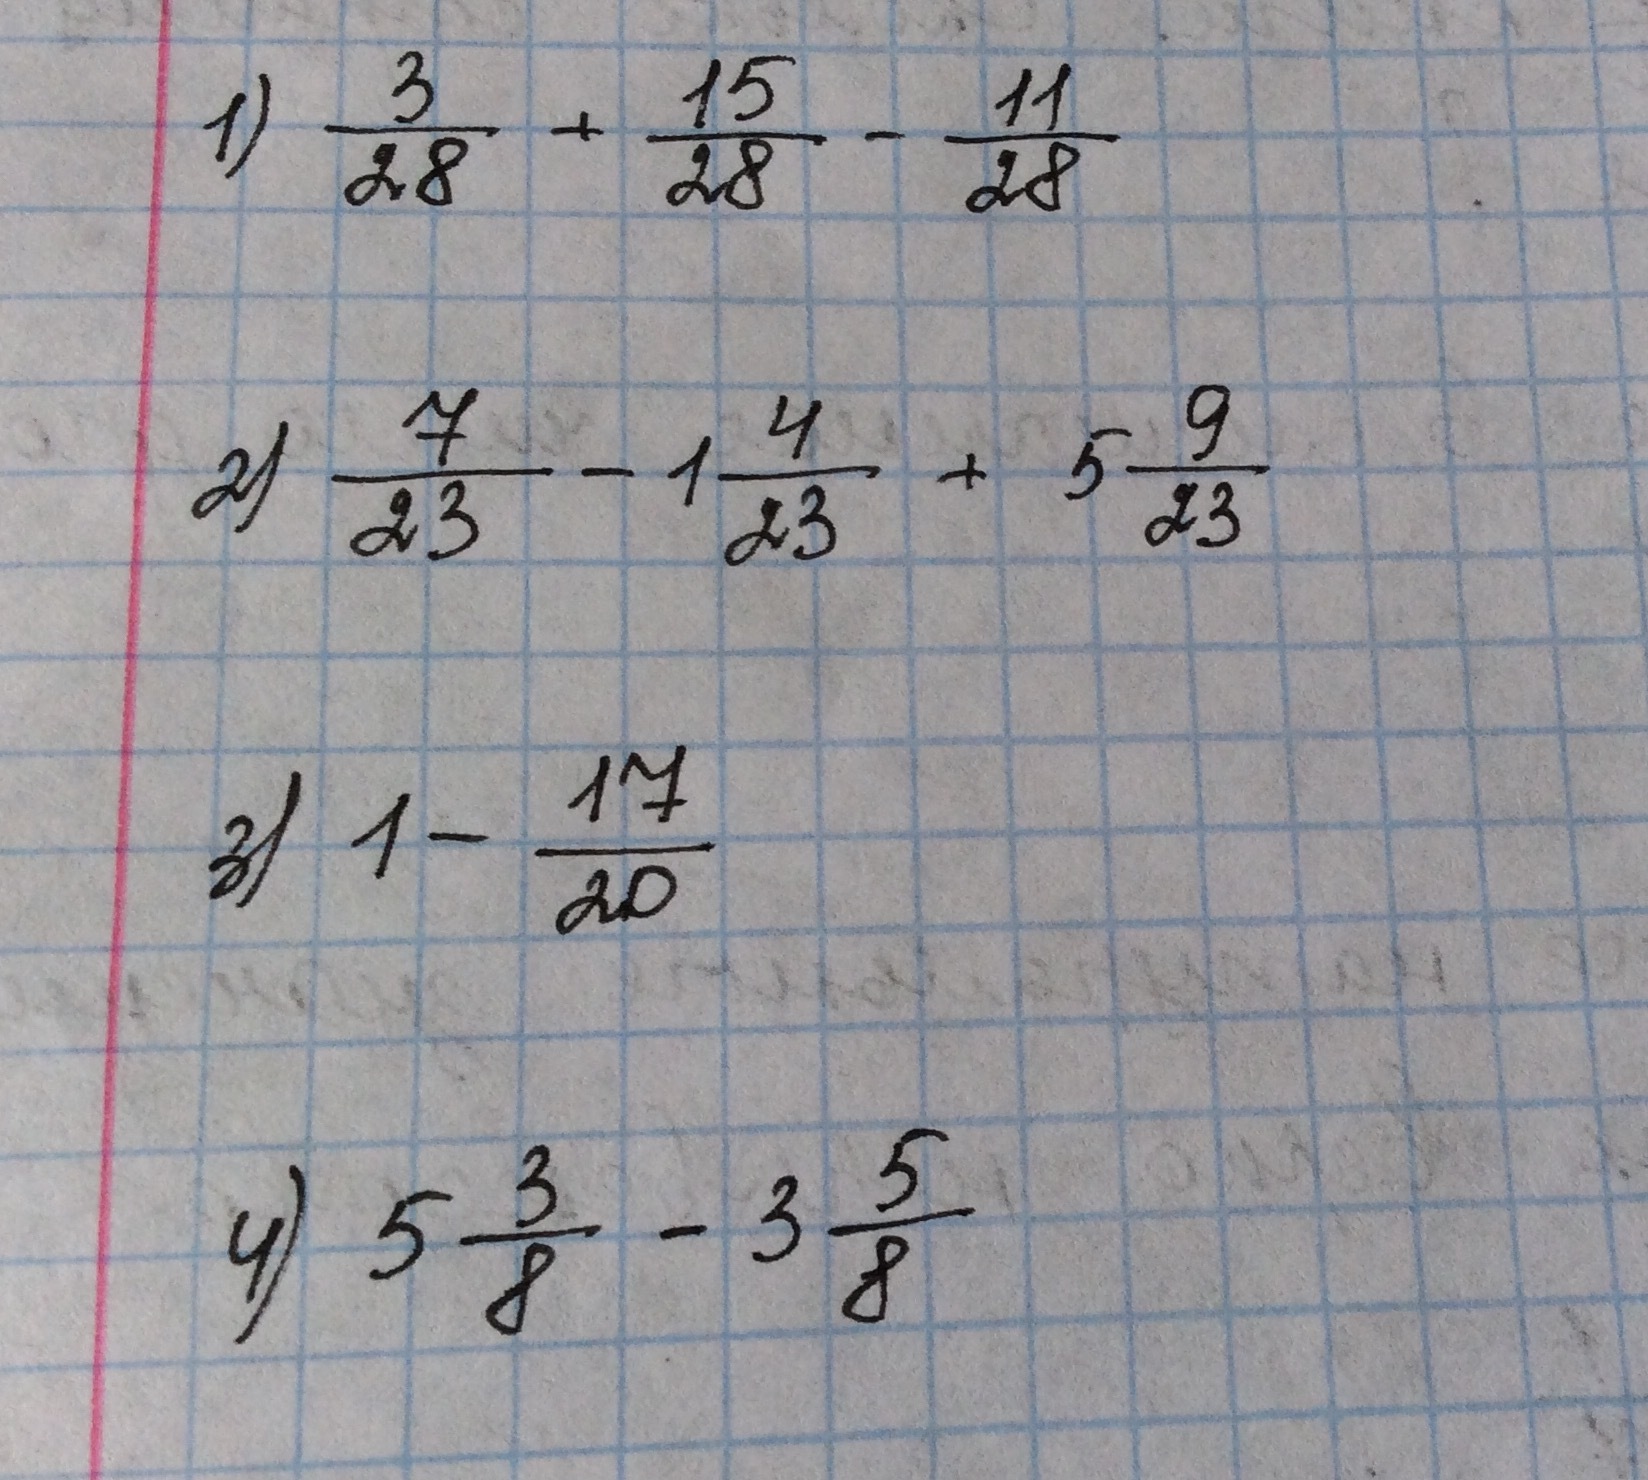 1) 3/28 + 15/28 - 11/28
2) 7/23 - 1 4/23 + 5 9/23
3) 1 - 17/20
4) 5 3/8 - 3 5/8